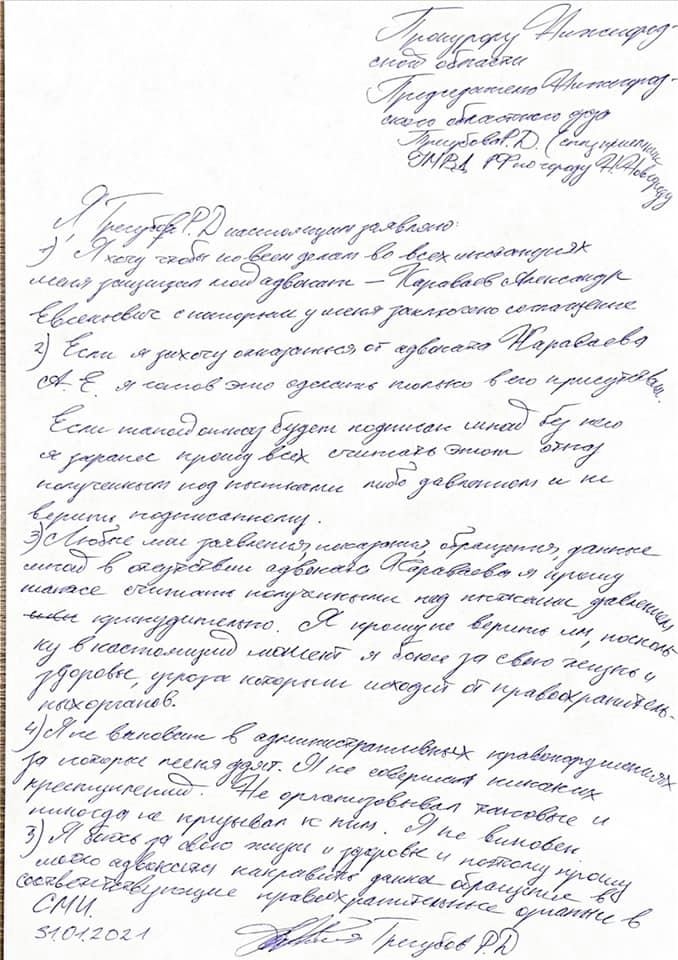 Прокурору Нижегород-
ской области
Председателю Нижегород-
ского областного суда
Трегубова Р.Д. (спецприемник
УМВД РФ по городу Н. Новгороду
Я, Трегубов Р.Д настоящим заявляю:
1) Я хочу чтобы по всем делам во всех инстанциях
меня защищал мой адвокат – Караваев Александр
Евгеньевич с которым у меня заключено соглашение
2) Если я захочу отказаться от адвоката Караваева
А.Е. я готов это сделать только в его присутствии.
Если такой отказ будет подписан мной без него
я заранее прошу всех считать этот отказ
полученным под пытками либо давлением и не
верить подписанному.
3) Любые мои заявления, показания, обращения, данные
мной в отсутствии адвоката Караваева я прошу
также считать полученными под пытками, давлением,
принудительно. Я прошу не верить им, посколь-
ку в настоящий момент я боюсь за свою жизнь и
здоровье, угроза которым исходит от правоохранитель-
ных органов.
4) Я не виноват в административных правонарушениях
за которые меня судят. Я не совершал никаких
преступлений. Не организовывал таковые и
никогда не призывал к ним. Я не виновен
3) Я боюсь за свою жизнь и здоровье и поэтому прошу
моего адвоката направить данное обращение в
соответствующие правоохранительные органы и в
СМИ.
31.01.2021
Трегубов Р.Д